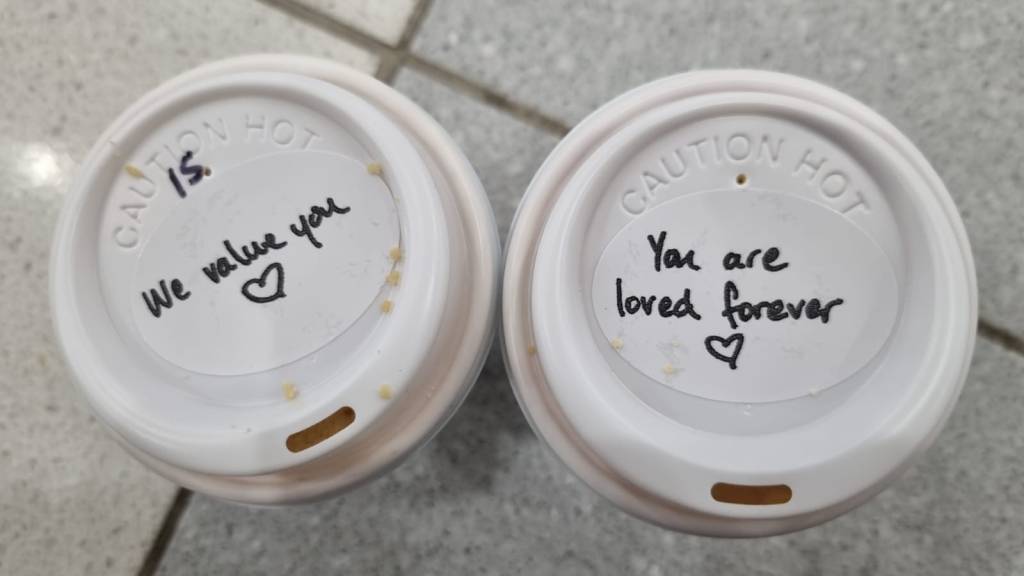 CAUTION HOT
15.
We value you
CAUTION HOT
You are
loved forever